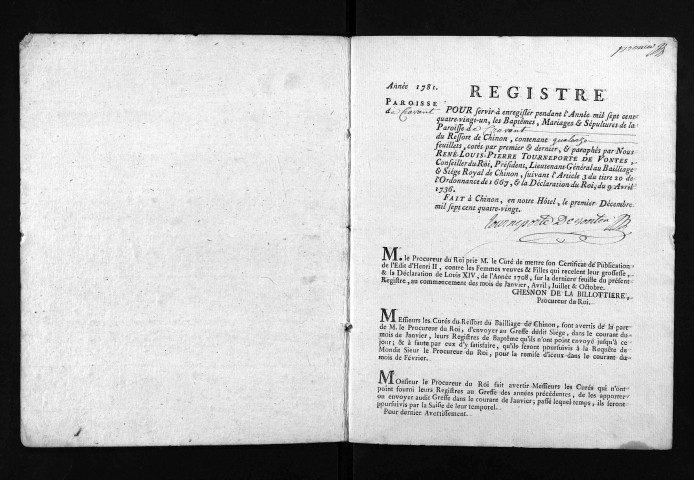 premier
Année 1781.
REGISTRE
PAROISSE
de Cravant
POUR servir à enregistrer pendant l'Année mil sept cent
quatre-vingt-un, les Baptêmes, Mariages & Sépultures de la
Paroisse de Cravant
du Ressort de Chinon, contenant quatorze
feuillets, cotés par premier & dernier, & paraphés par Nous
RENÉ-LOUIS-PIERRE TOURNEPORTE DE VONTES,
Conseiller du Roi, Président, Lieutenant-Général au Bailliage
& Siège Royal de Chinon, suivant l'Article 3 du titre 20 de
l'Ordonnance de 1667, & la Déclaration du Roi, du 9 Avril
1736.
FAIT à Chinon, en notre Hôtel, le premier Décembre
mil sept cent quatre-vingt.
Tourneporte Devontes
M. le Procureur du Roi prie M. le Curé de mettre son Certificat de Publication
de l'Edit d'Henri II, contre les Femmes veuves & Filles qui recelent leur grossesse,
& la Déclaration de Louis XIV, de l'Année 1708, sur la derniere feuille du présent
Registre, au commencement des mois de Janvier, Avril, Juillet & Octobre.
CHESNON DE LA BILLOTTIERE,
Procureur du Roi.
Messieurs les Curés du Ressort du Bailliage de Chinon, sont avertis de la part
de M. le Procureur du Roi, d'envoyer au Greffe dédit Siège, dans le courant du
mois de Janvier, leurs Registres de Baptême qu'ils n'ont point envoyé jusqu'à ce
jour; & à faute par eux d'y satisfaire, qu'ils seront poursuivis à la Requête de
Mondit Sieur le Procureur du Roi, pour la remise d'iceux dans le courant du
mois de Février.
Monsieur le Procureur du Roi fait avertir Messieurs les Curés qui n'ont
point fourni leurs Registres au Greffe des années précédentes, de les apporter
ou envoyer audit Greffe dans le courant de Janvier; passé lequel temps, ils seront
poursuivis par la Saisie de leur temporel.
Pour dernier Avertissement.